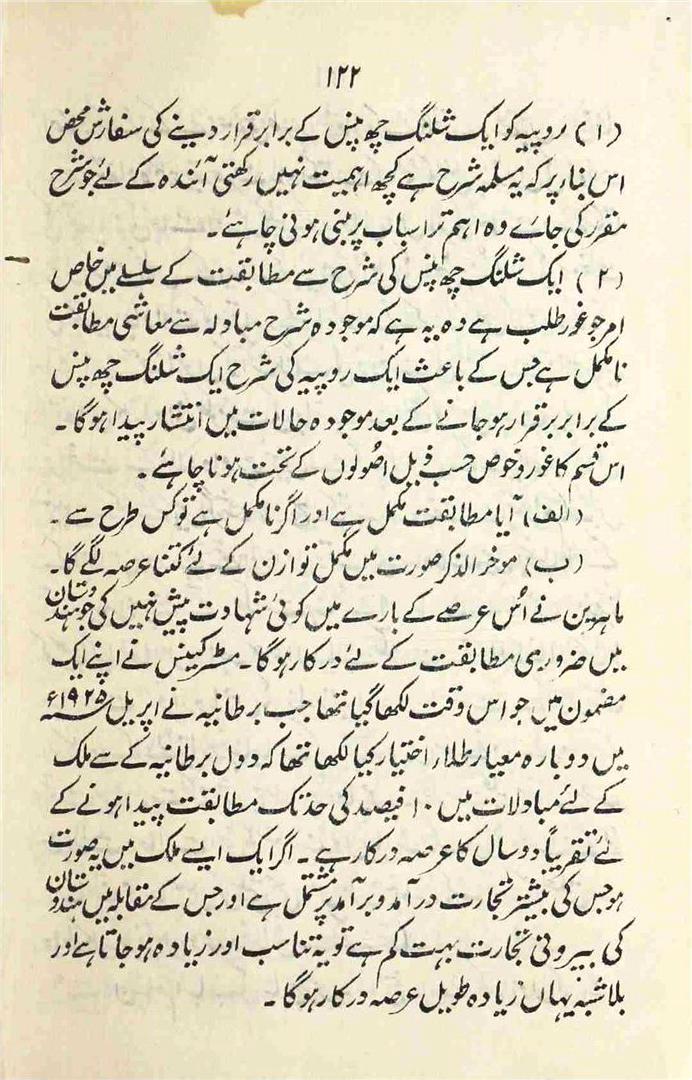 ۱۲۲
(۱) روپیہ کو ایک شلنگ چھ پنس کے برابر قرار دینے کی سفارش محض
اس بناء پر کہ یہ مسلمہ شرح ہے کچھ اہمیت نہیں رکھتی آئندہ کے لئے جو شرح
مقرر کی جائے وہ اہم تر اسباب پر مبنی ہونی چاہئے۔
(۲) ایک شلنگ چھ پنس کی شرح سے مطابقت کے سلسلے میں خاص
امر جو غور طلب ہے وہ یہ ہے کہ موجودہ شرح مبادلہ سے معاشی مطابقت
نامکمل ہے جس کے باعث ایک روپیہ کی شرح ایک شلنگ چھ پنس
کے برابر برقرار ہو جانے کے بعد موجودہ حالات میں انتشار پیدا ہوگا۔
اس قسم کا غور و خوض حسب ذیل اصولوں کے تحت ہونا چاہئے۔
(الف) آیا مطابقت مکمل ہے اور اگر نامکمل ہے تو کس طرح سے۔
(ب) موخر الذکر صورت میں مکمل توازن کے لئے کتنا عرصہ لگے گا۔
ماہرین نے اُس عرصے کے بارے میں کوئی شہادت پیش نہیں کی جو ہندوستان
میں ضروری مطابقت کے لئے درکار ہوگا۔ مسٹر کینس نے اپنے ایک
مضمون میں جو اس وقت لکھا گیا تھا جب برطانیہ نے اپریل ۱۹۲۵ء
میں دوبارہ معیار طلاء اختیار کیا لکھا تھا کہ دول برطانیہ کے سے ملک
کے لئے مبادلات میں ۱۰ فیصد کی حد تک مطابقت پیدا ہونے کے
لئے تقریباً دو سال کا عرصہ درکار ہے۔ اگر ایک ایسے ملک میں یہ صورت
ہو جس کی بیشتر تجارت درآمد و برآمد پر مشتمل ہے اور جس کے مقابلہ میں ہندوستان
کی بیرونی تجارت بہت کم ہے تو یہ تناسب اور زیادہ ہو جاتا ہے اور
بلا شبہ یہاں زیادہ طویل عرصہ درکار ہوگا۔